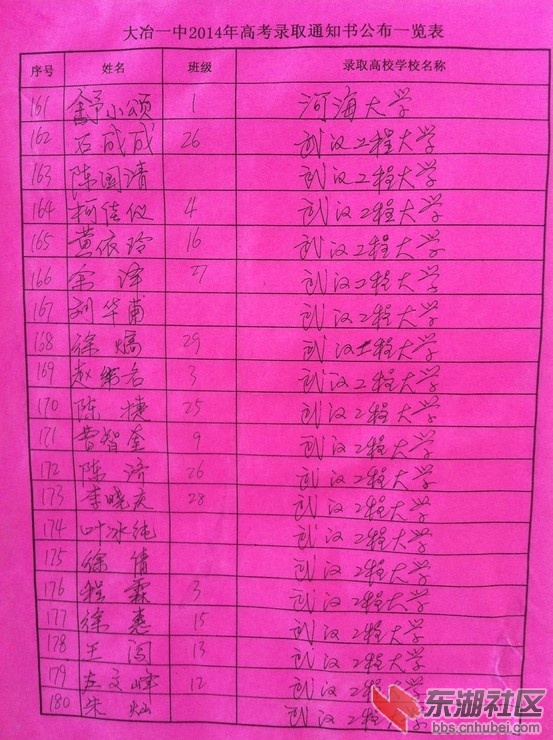 大冶一中2014年高考录取通知书公布一览表
序号 姓名 班级 录取高校学校名称
161 舒小颂 1 河海大学
162 石成成 26 武汉工程大学
163 陈国清 武汉工程大学
164 柯佳仪 4 武汉工程大学
165 黄依玲 16 武汉工程大学
166 余泽 27 武汉工程大学
167 刘华甫 武汉工程大学
168 徐熇 29 武汉工程大学
169 赵 名 3 武汉工程大学
170 陈捷 25 武汉工程大学
171 曹智奎 9 武汉工程大学
172 陈济 26 武汉工程大学
173 李晓庆 28 武汉工程大学
174 叶冰纯 武汉工程大学
175 徐倩 武汉工程大学
176 程霖 3 武汉工程大学
177 徐惠 15 武汉工程大学
178 王闯 13 武汉工程大学
179 左文峰 12 武汉工程大学
180 朱灿 武汉工程大学
东湖社区
bbs.cnhubei.com